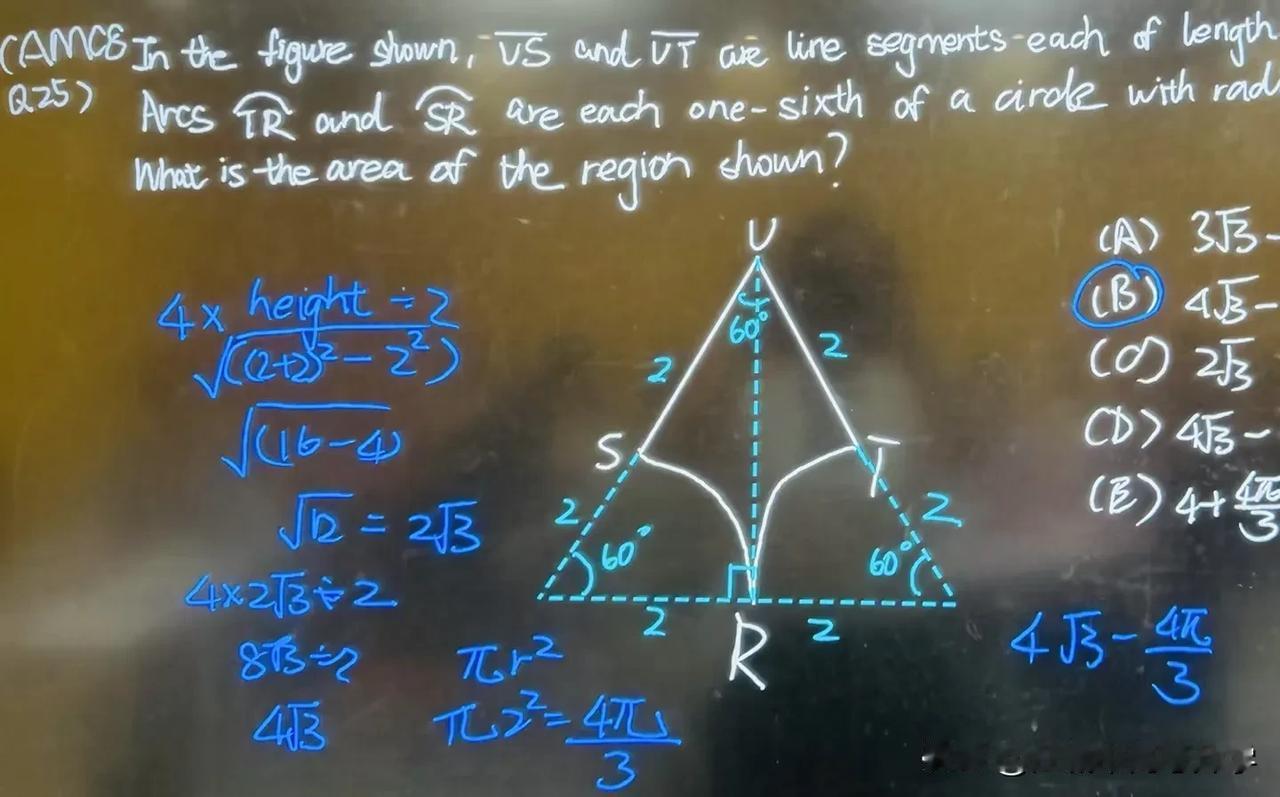 (AMC8 In the figure shown, US and UT are line segments each of length
Q25) Arcs TR and SR are each one-sixth of a circle with rad
What is the area of the region shown?
(A) 3√3 -
(B) 4√3 -
(C) 2√3
(D) 4√3 -
(E) 4 + 4π/3
4 × height ÷ 2
√((2+2)² - 2²)
√(16-4)
√12 = 2√3
4×2√3÷2
8√3÷2
4√3
πr²
π2² = 4π/3
U
60°
2
2
S
T
2
2
60°
60°
2
2
R
4√3 - 4π/3